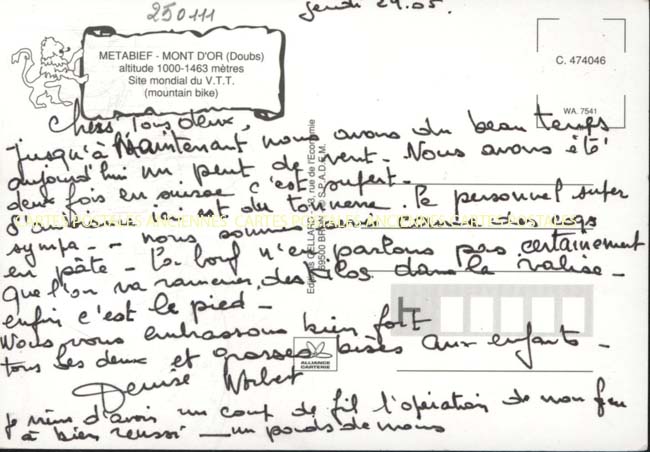 250111
jeudi 29.05.
METABIEF - MONT D'OR (Doubs)
altitude 1000-1463 mètres
Site mondial du V.T.T.
(mountain bike)
C. 474046
WA. 7541
Chers Tous deux,
jusqu'à Maintenant nous avons du beau temps
aujourd'hui un peut de vent - Nous avons été
deux fois en suisse c'est parfait -
l'ambiance ici est du tonnerre. le personnel super
sympa - - nous sommes comme des coqs
en pâte - la bouf n'en parlons pas certainement
que l'on va ramener des kilos dans la valise -
enfin c'est le pied -
Nous vous embrassons bien fort
tous les deux et grosses bises aux enfants -
Denise Norbert
je viens d'avoir un coup de fil l'opération de mon
à bien reussi — un poids de moins
CARTES POSTALES ANCIENNES CARTES POSTALES ANCIENNES CARTES POSTALES
Editions CELLARD rue de l'Economie
69500 BRON S.P.A.D.E.M.
ALLIANCE
CARTERIE